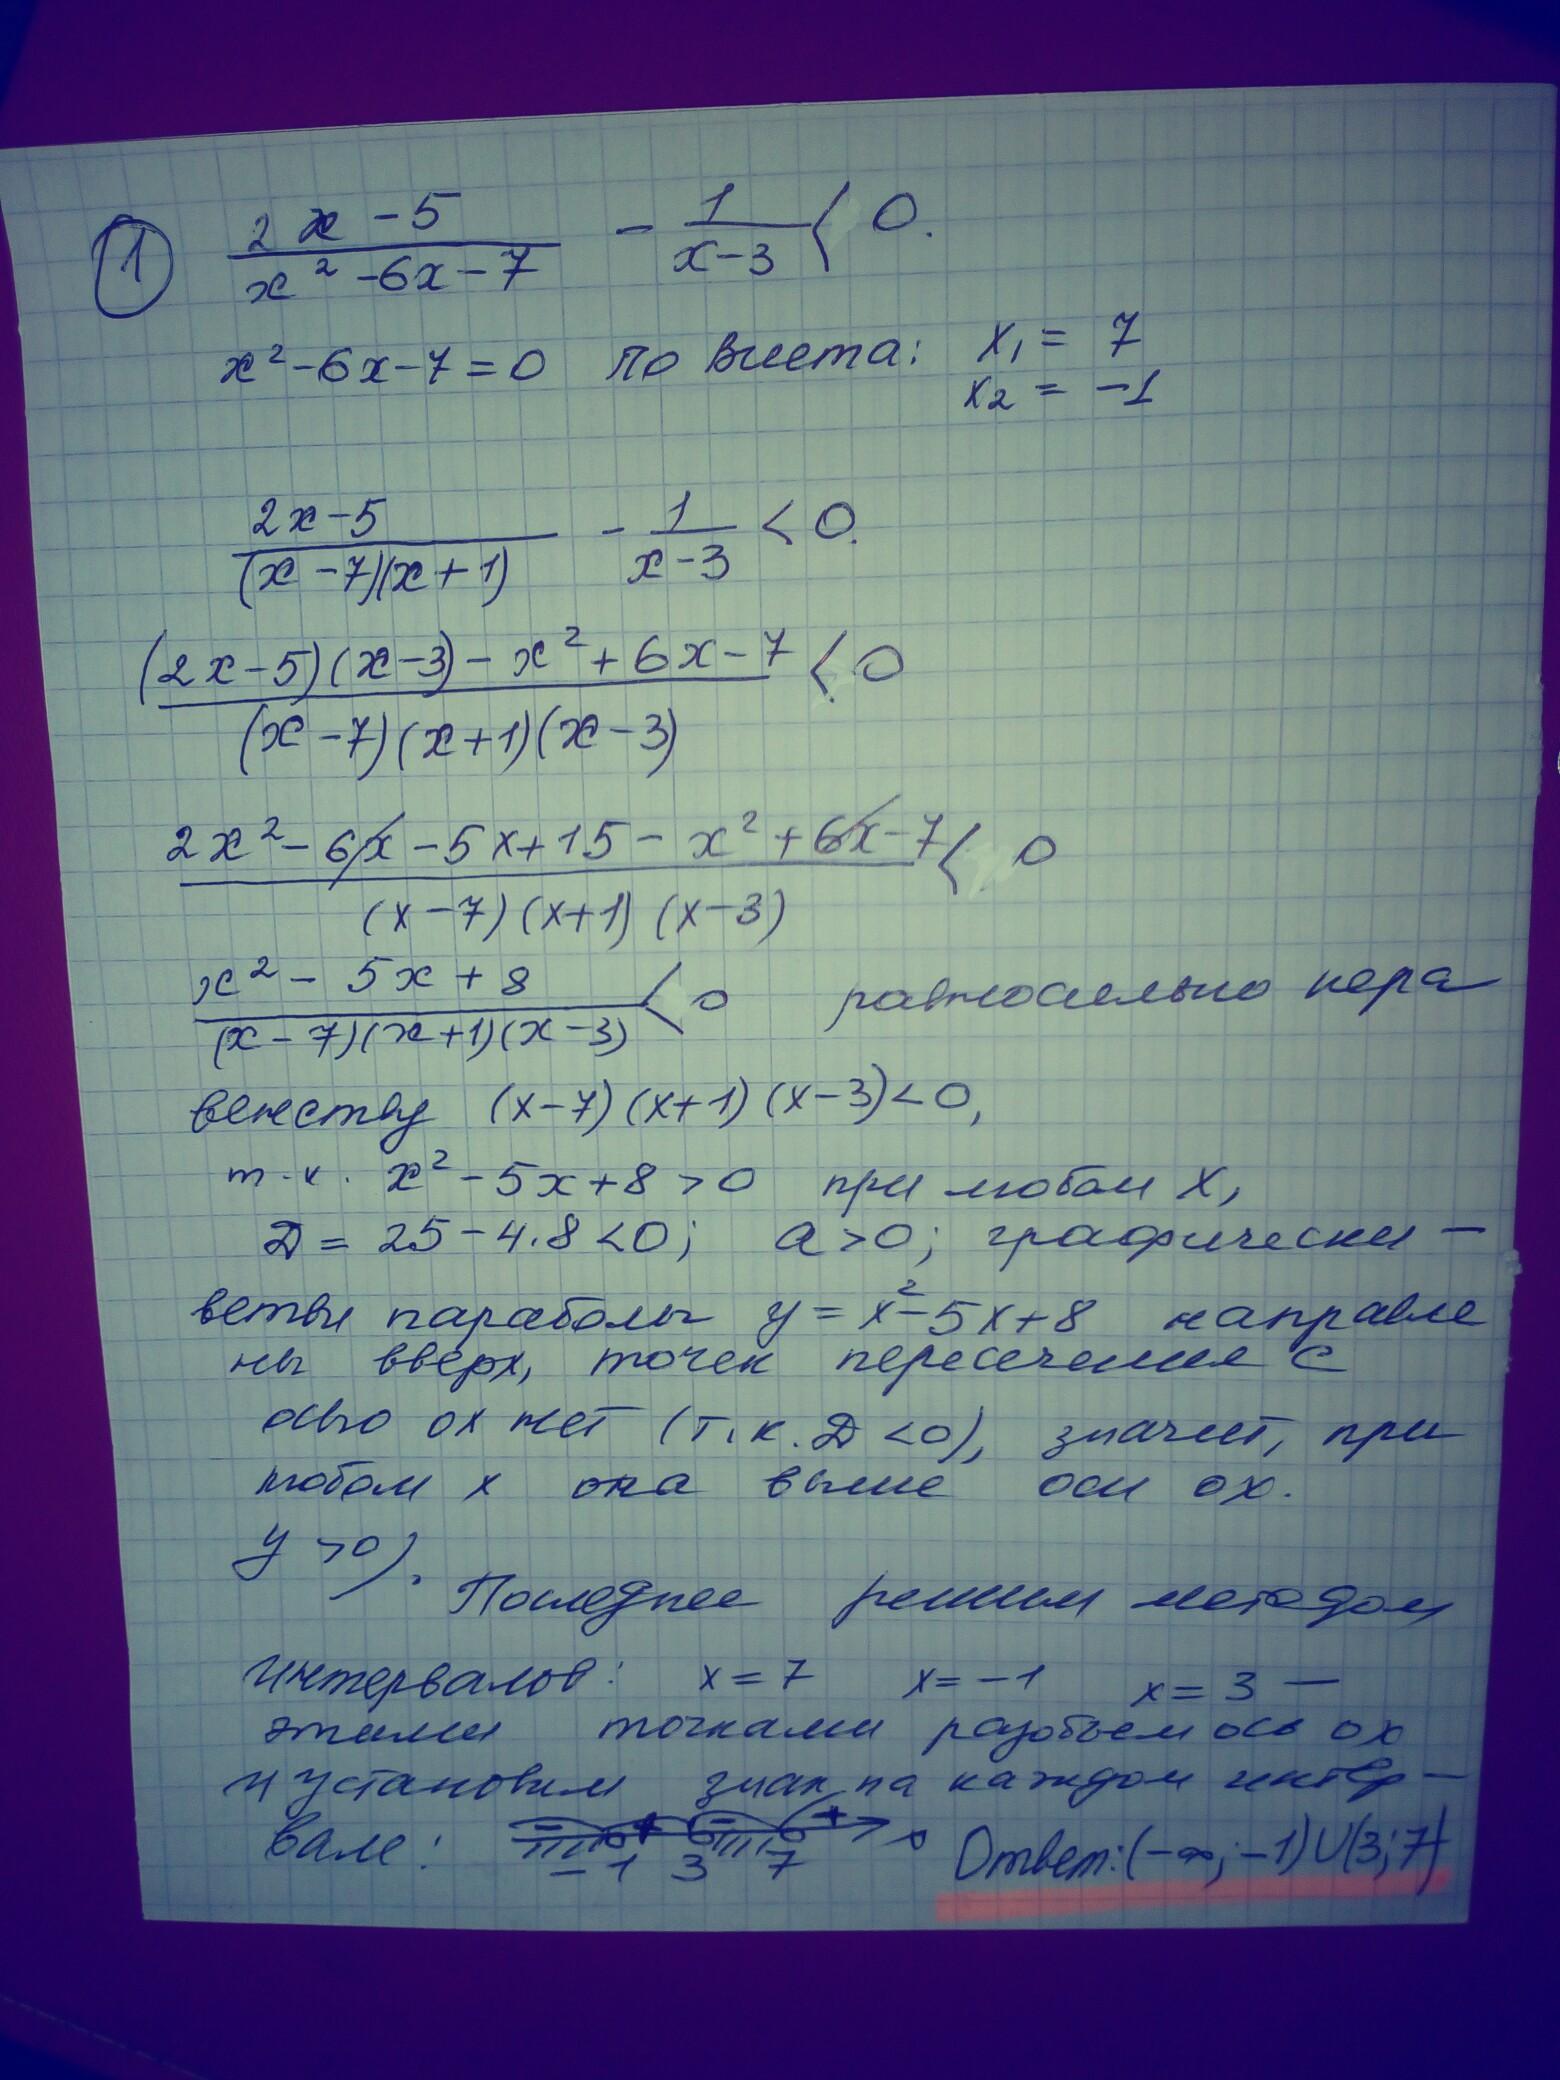 1 (2x-5)/(x²-6x-7) - 1/(x-3) < 0.
x²-6x-7=0 по Виета: x₁ = 7
x₂ = -1
(2x-5)/((x-7)(x+1)) - 1/(x-3) < 0.
((2x-5)(x-3)-x²+6x-7)/((x-7)(x+1)(x-3)) < 0
(2x²-6x-5x+15-x²+6x-7)/((x-7)(x+1)(x-3)) < 0
(x²-5x+8)/((x-7)(x+1)(x-3)) < 0 равносильно нера
венству (x-7)(x+1)(x-3)<0,
т.к. x²-5x+8>0 при любом x,
D = 25-4.8<0; a>0; графически -
ветви параболы y=x²-5x+8 направле
ны вверх, точек пересечения с
осью ox нет (т.к. D<0), значит, при
любом x она выше оси ox.
y>0).
Последнее решим методом
интервалов: x=7 x=-1 x=3 —
этими точками разобьем ось ox
и установим знак на каждом интер-
вале: - + - + -1 3 7 Ответ: (-∞; -1)∪(3; 7)